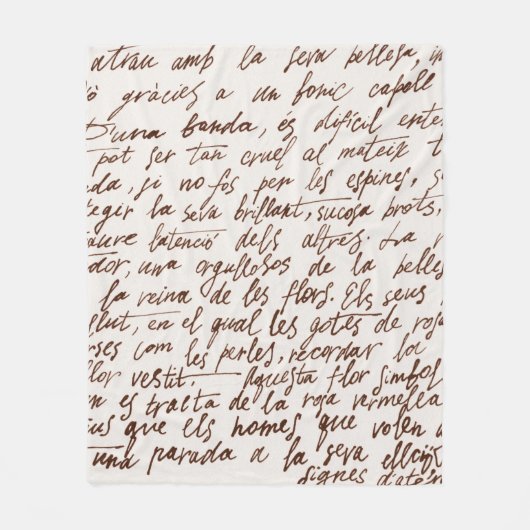 atrau amb la seva bellesa, in
ó gràcies a un bonic capell
D'una banda, és difícil ente
pot ser tan cruel al mateix t
da, si no fos per les espines, s
tegir la seva brillant, sucosa brots,
aure l'atenció dels altres. La r
dor, una orgullosos de la belles
la reina de les flors. Els seus
llut, en el qual les gotes de rosa
rses com les perles, recordar la
flor vestit. Aquesta flor simbol
n es tracta de la rosa vermella
ius que els homes que volen a
una parada a la seva elecció
signes d'aten